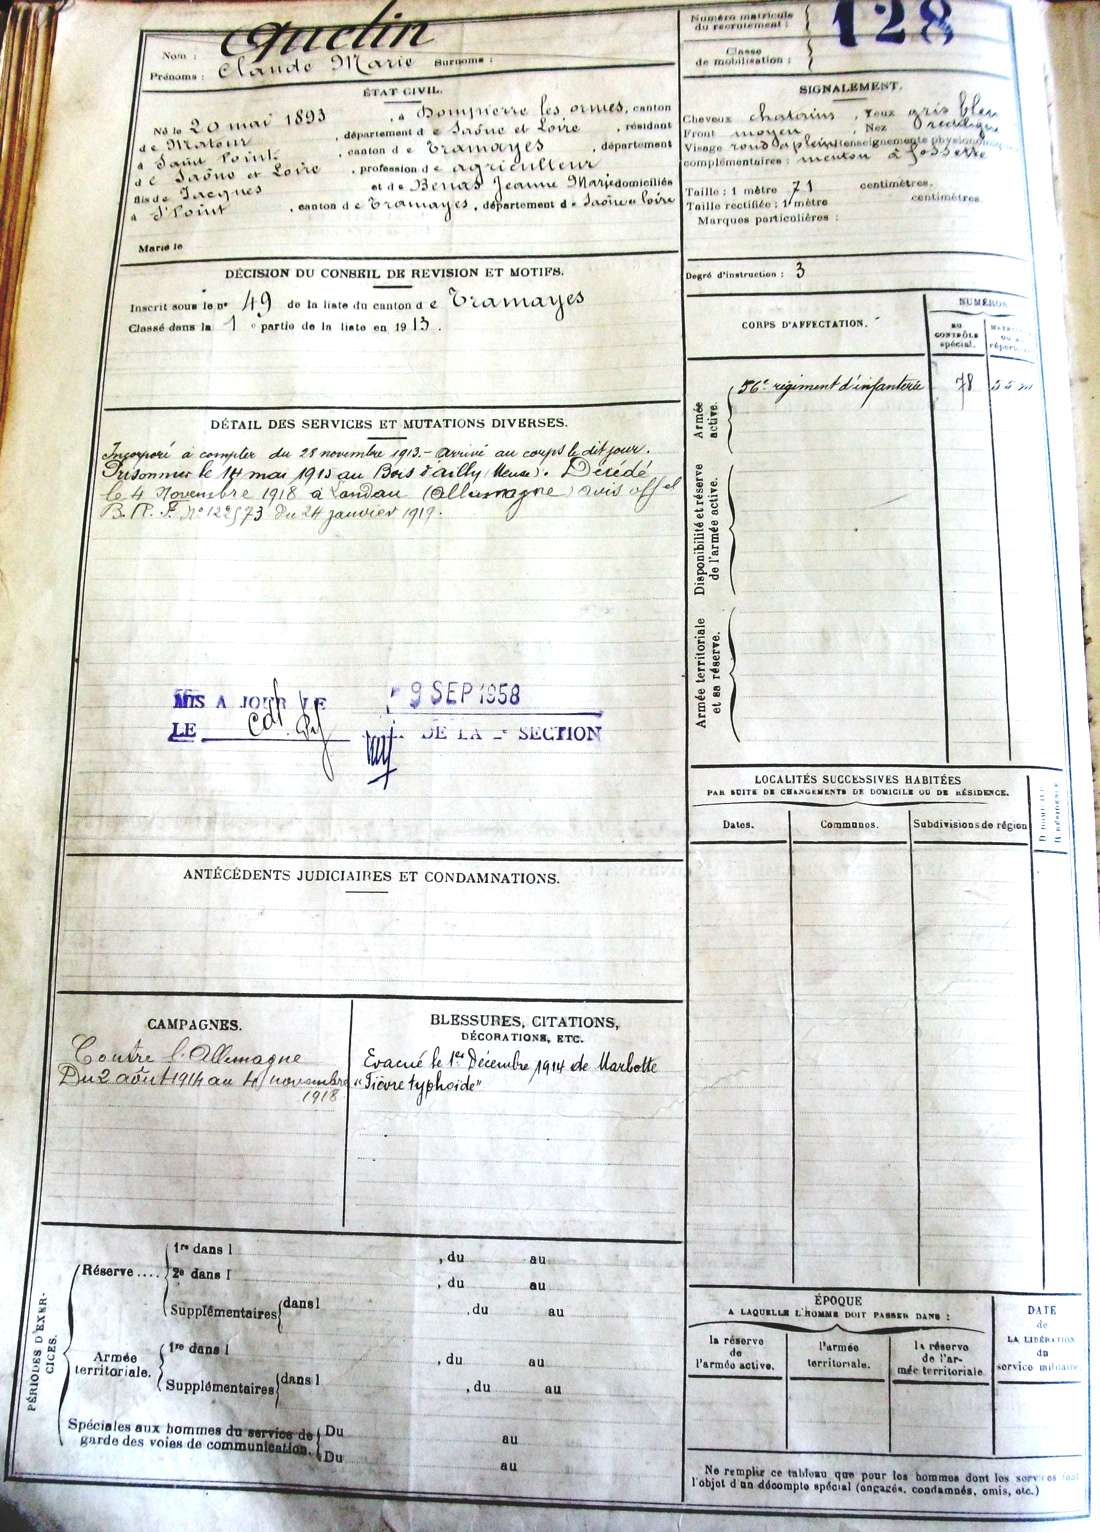 Nom : Quelin
Prénoms : Claude Marie Surnoms :
Numéro matricule
du recrutement : 128
Classe
de mobilisation :
ÉTAT CIVIL.
Né le 20 mai 1893, à Dompierre les ormes, canton
de Matour, département de Saône et Loire, résidant
à Saint Point, canton de Tramayes, département
de Saône et Loire, profession de agriculteur
fils de Jacques et de Benas Jeanne Marie domiciliés
à St Point, canton de Tramayes, département de Saône et Loire
Marié le
SIGNALEMENT.
Cheveux chatains, Yeux gris bleu
Front moyen, Nez rectiligne
Visage rond aplein renseignements physionomiques
complémentaires : menton à fossette
Taille : 1 mètre 71 centimètres.
Taille rectifiée : 1 mètre centimètres.
Marques particulières :
Degré d'instruction : 3
DÉCISION DU CONSEIL DE REVISION ET MOTIFS.
Inscrit sous le nº 49 de la liste du canton de Tramayes
Classé dans la 1e partie de la liste en 1913.
DÉTAIL DES SERVICES ET MUTATIONS DIVERSES.
Incorporé à compter du 28 novembre 1913.- Arrivé au corps le dit jour.
Prisonnier le 14 mai 1915 au Bois d'ailly (Meuse). Décédé
le 4 Novembre 1918 à Landau (Allemagne) avis offel
Nº 122573 du 24 janvier 1919.
MIS A JOUR LE 9 SEP 1958
LE DE LA SECTION
CORPS D'AFFECTATION.
NUMÉROS
AU
CONTRÔLE
spécial.
Armée
active.
56e régiment d'infanterie 78
Disponibilité et réserve
de l'armée active.
Armée territoriale
et sa réserve.
LOCALITÉS SUCCESSIVES HABITÉES
PAR SUITE DE CHANGEMENTS DE DOMICILE OU DE RÉSIDENCE.
Dates. Communes. Subdivisions de région
ANTÉCÉDENTS JUDICIAIRES ET CONDAMNATIONS.
CAMPAGNES.
Contre l'Allemagne
Du 2 août 1914 au 4 novembre
1918
BLESSURES, CITATIONS,
DÉCORATIONS, ETC.
Evacué le 1er Décembre 1914 de Marbotte
"Fièvre typhoïde"
PÉRIODES D'EXER-
CICES.
Réserve....
1re dans l , du au
2e dans l , du au
Supplémentaires dans l , du au
Armée
territoriale.
1re dans l , du au
Supplémentaires dans l , du au
Spéciales aux hommes du service de
garde des voies de communication.
Du au
Du au
ÉPOQUE
A LAQUELLE L'HOMME DOIT PASSER DANS :
la réserve
de
l'armée active.
l'armée
territoriale.
la réserve
de l'ar-
mée territoriale
DATE
de
LA LIBÉRATION
du
service militaire.
Ne remplir ce tableau que pour les hommes dont les services font
l'objet d'un décompte spécial (engagés, condamnés, omis, etc.)